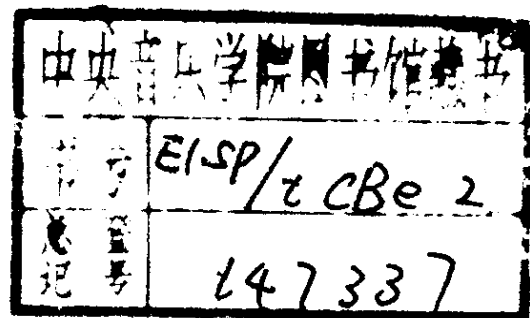 中央音乐学院图书馆藏书
书号 E1SP/t CBe 2
总登记号 147337